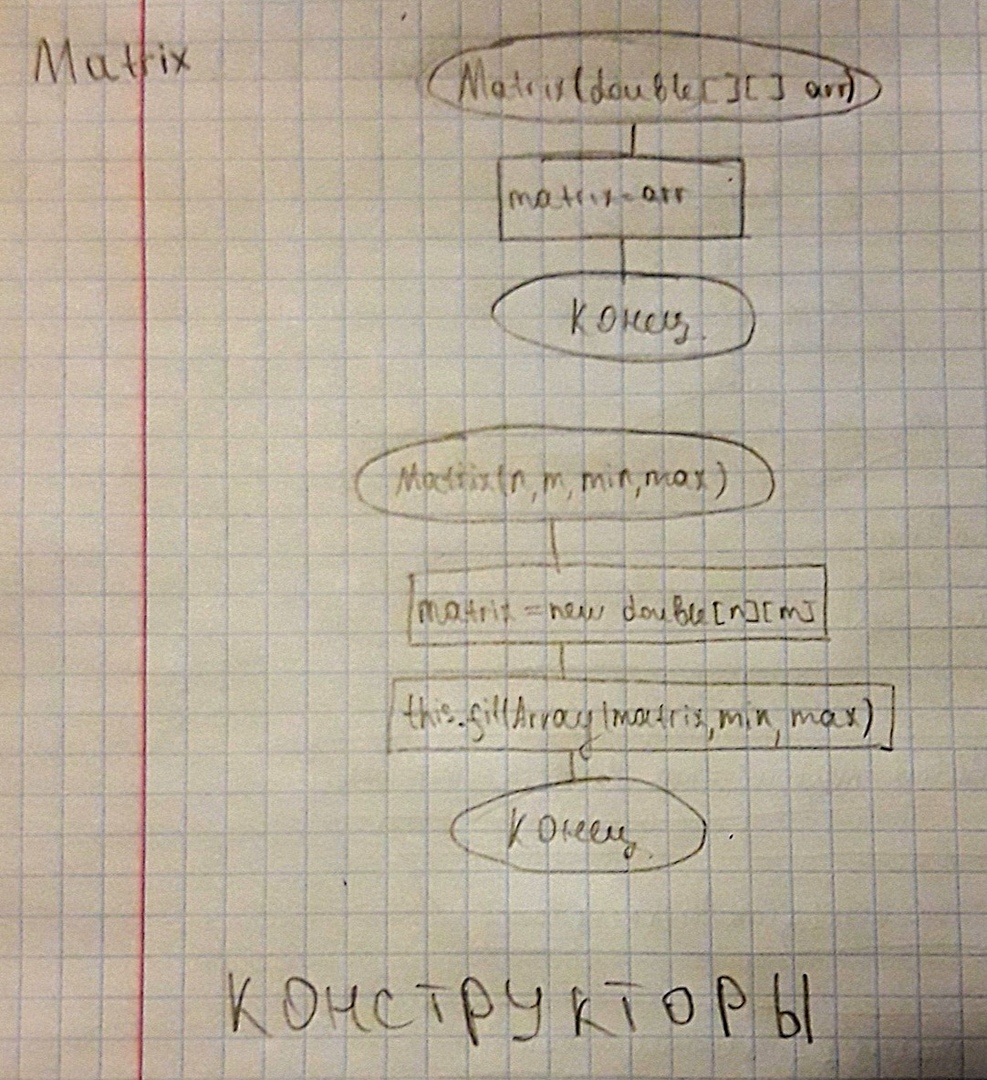 Matrix
Matrix(double[][] arr)
matrix=arr
Конец
Matrix(n,m,min,max)
matrix=new double[n][m]
this.fillArray(matrix,min,max)
Конец
КОНСТРУКТОРЫ